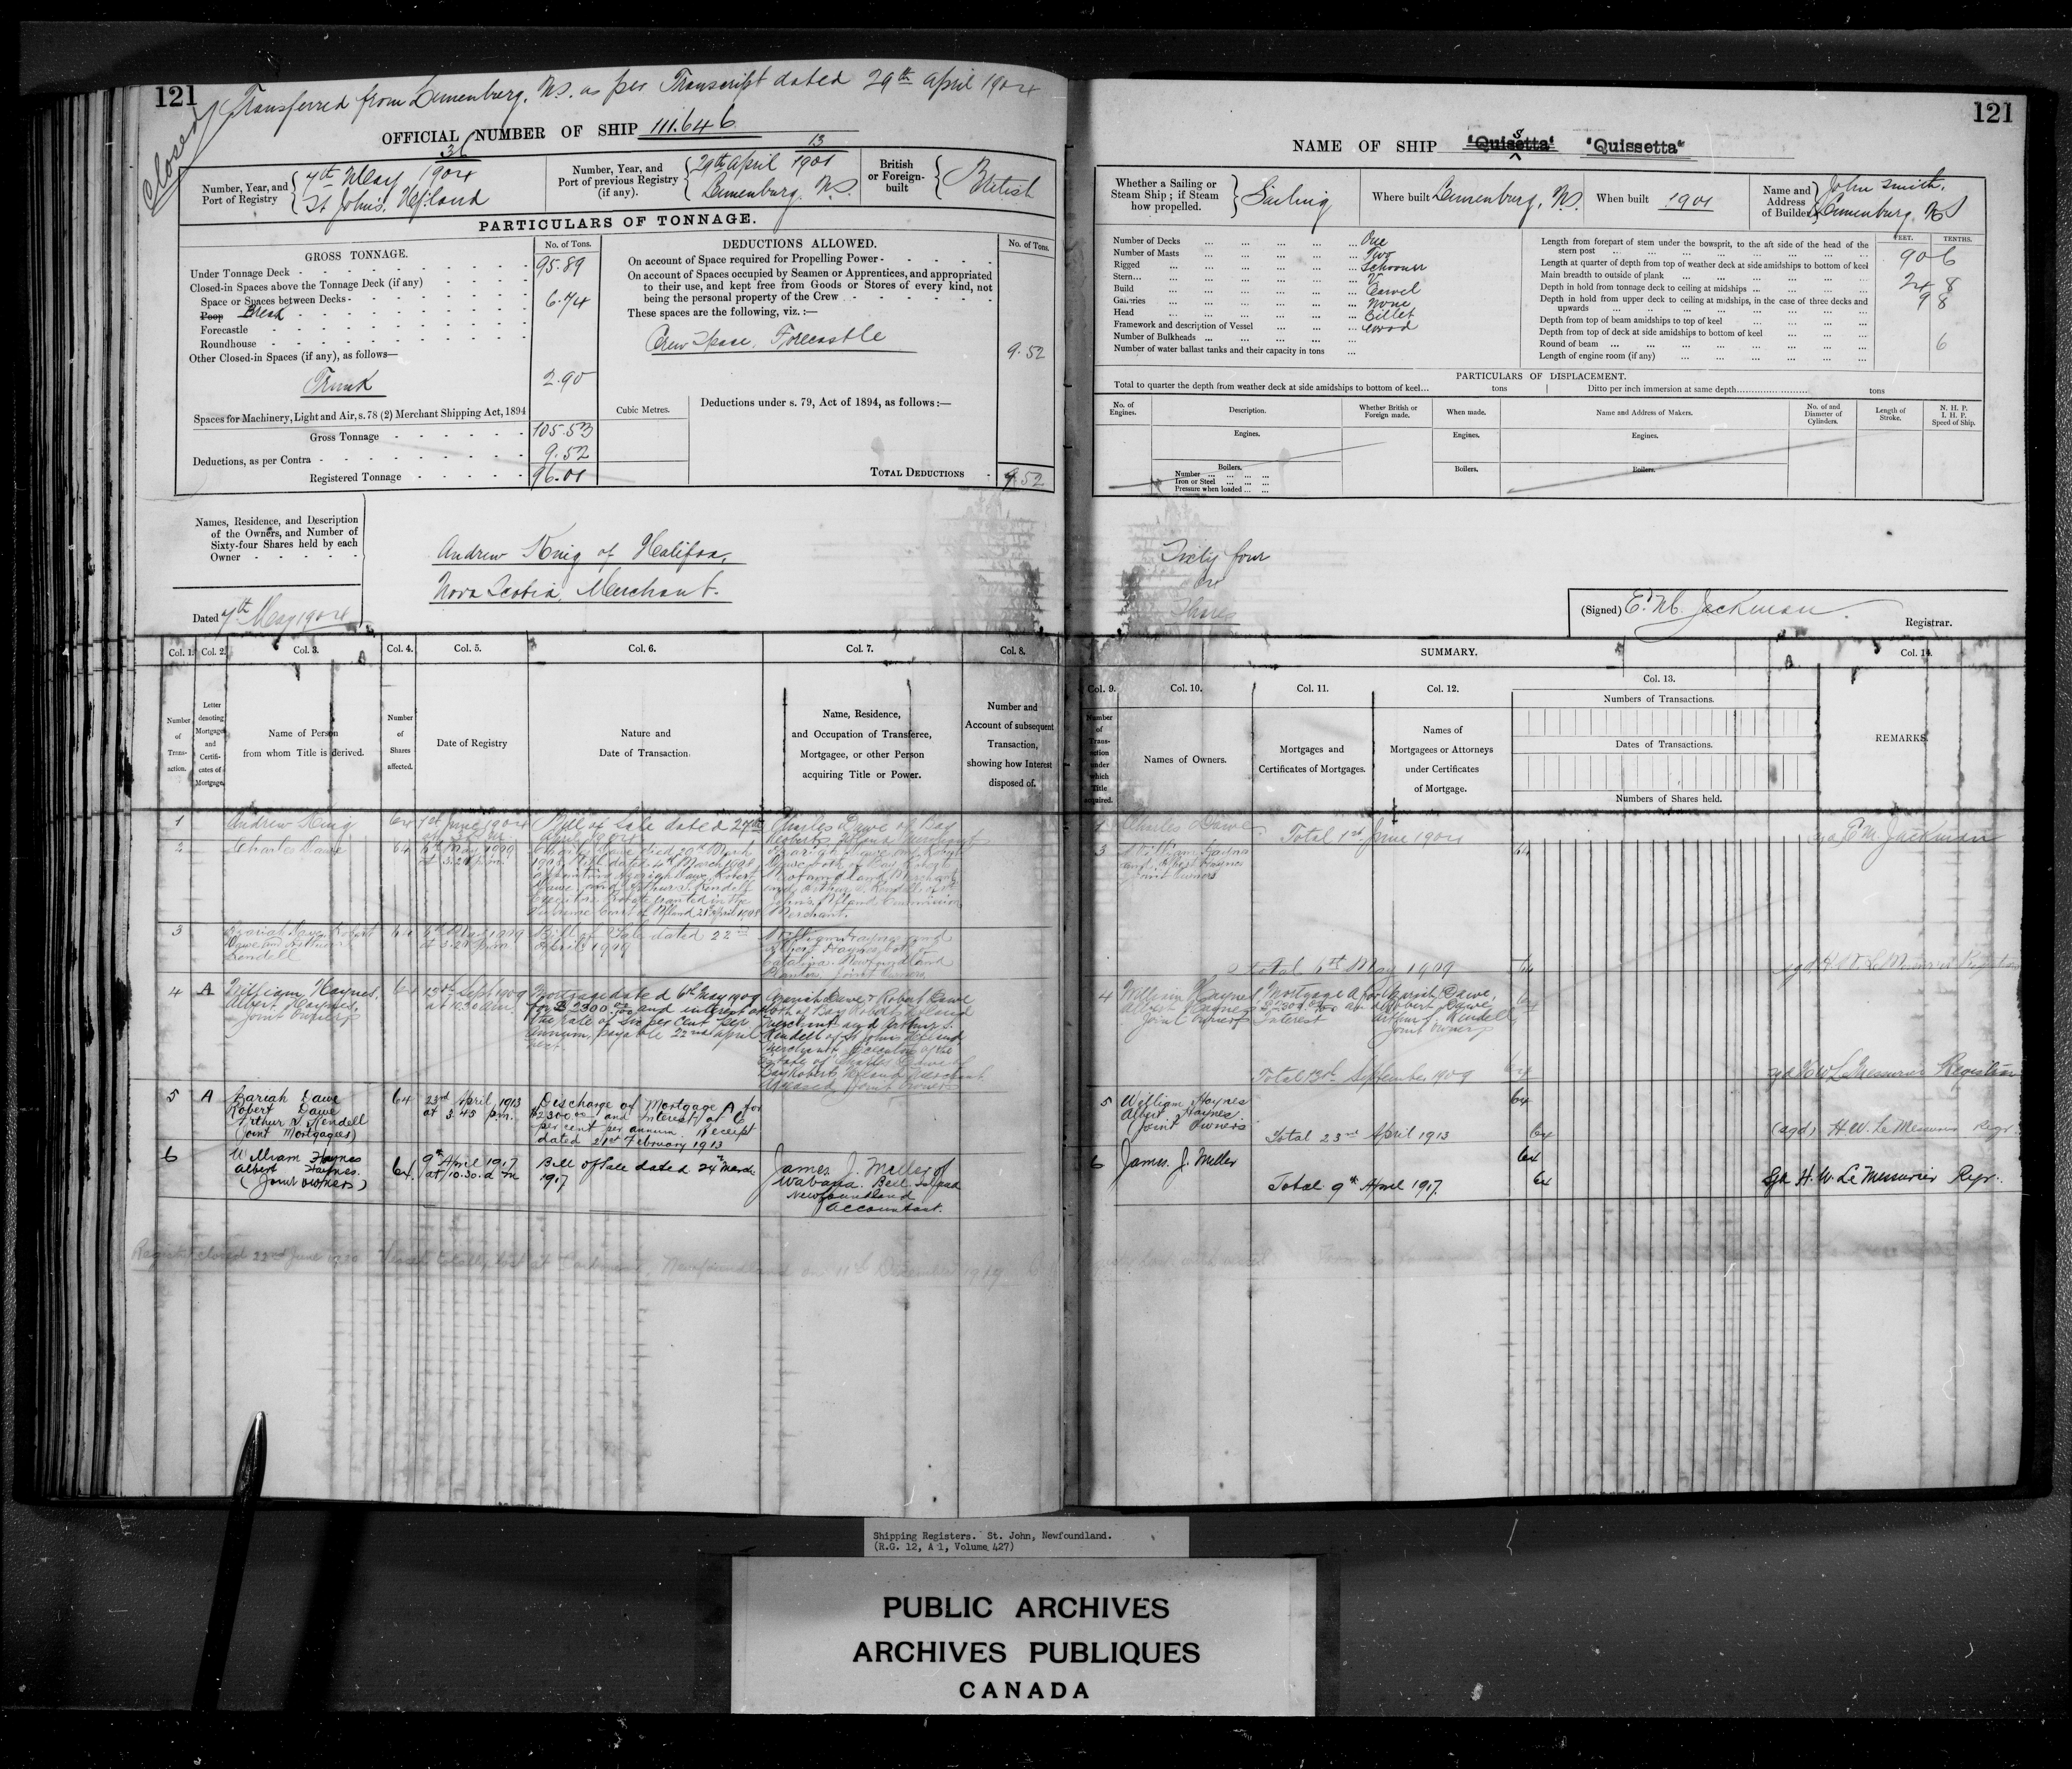 121
Transferred from Lunenburg, N.S. as per Transcript dated 29th April 1904
Closed
OFFICIAL NUMBER OF SHIP 111.646
Number, Year, and
Port of Registry
36
7th May 1904
St John's, Nfland
Number, Year, and
Port of previous Registry
(if any).
13
29th April 1901
Lunenburg. N.S.
British
or Foreign-
built
British
PARTICULARS OF TONNAGE.
GROSS TONNAGE.
No. of Tons.
Under Tonnage Deck 95.89
Closed-in Spaces above the Tonnage Deck (if any)
Space or Spaces between Decks
Poop Break 6.74
Forecastle
Roundhouse
Other Closed-in Spaces (if any), as follows—
Trunk 2.90
Spaces for Machinery, Light and Air, s. 78 (2) Merchant Shipping Act, 1894
Gross Tonnage 105.53
Deductions, as per Contra 9.52
Registered Tonnage 96.01
DEDUCTIONS ALLOWED.
No. of Tons.
On account of Space required for Propelling Power
On account of Spaces occupied by Seamen or Apprentices, and appropriated
to their use, and kept free from Goods or Stores of every kind, not
being the personal property of the Crew
These spaces are the following, viz. :—
Crew Space, Forecastle 9.52
Cubic Metres.
Deductions under s. 79, Act of 1894, as follows :—
TOTAL DEDUCTIONS 9.52
Names, Residence, and Description
of the Owners, and Number of
Sixty-four Shares held by each
Owner
Andrew King of Halifax,
Nova Scotia, Merchant.
Dated 7th May 1904
Col. 1. Col. 2. Col. 3. Col. 4. Col. 5. Col. 6. Col. 7. Col. 8.
Number
of
Trans-
action.
Letter
denoting
Mortgage
and
Certifi-
cates of
Mortgage.
Name of Person
from whom Title is derived.
Number
of
Shares
affected.
Date of Registry
Nature and
Date of Transaction.
Name, Residence,
and Occupation of Transferee,
Mortgagee, or other Person
acquiring Title or Power.
Number and
Account of subsequent
Transaction,
showing how Interest
disposed of.
1
Andrew King
64
1st June 1904
Bill of Sale dated 27th
April 1904
Charles Dawe of Bay
Roberts, Nfland Merchant
2
Charles Dawe
64
6th May 1909
at 3.20 p.m.
Charles Dawe died 20th March
1908. Will dated 4th March 1908
appointing Azariah Dawe, Robert
Dawe and Arthur S. Rendell
Executors. Probate granted in the
Supreme Court of Nfland 21st April 1908
Azariah Dawe and Robert
Dawe both of Bay Roberts
Newfoundland Merchants
and Arthur S. Rendell of St
John's Nfland Commission
Merchant.
3
Azariah Dawe, Robert
Dawe and Arthur S.
Rendell
64
6th May 1909
at 3.20 p.m.
Bill of Sale dated 22nd
April 1909
William Haynes and
Albert Haynes both of
Catalina Newfoundland
Planters Joint Owners
4 A
William Haynes,
Albert Haynes,
Joint Owners
64
13th Sept 1909
at 10.30 a.m.
Mortgage dated 6th May 1909
for $2300.00 and interest at
the rate of Six per Cent per
Annum, payable 22nd April
next
Azariah Dawe & Robert Dawe
both of Bay Roberts Nfland
Merchants and Arthur S.
Rendell of St John's Nfland
Merchant Executors of the
Estate of Charles Dawe of
Bay Roberts Nfland Merchant
deceased Joint Owners
5 A
Zariah Dawe
Robert Dawe
Arthur S. Rendell
(Joint Mortgagees)
64
23rd April 1913
at 3.45 p.m.
Discharge of Mortgage A for
$2300.00 and interest at 6
per cent per annum. Receipt
dated 21st February 1913
6
William Haynes
Albert Haynes.
(Joint owners)
64
9th April 1917
at 10.30. a.m
Bill of Sale dated 24th March
1917
James J. Miller of
Wabana. Bell Island
Newfoundland
accountant.
Register closed 22nd June 1920 Vessel totally lost at Newfoundland on 11th December 1919
121
NAME OF SHIP "Quisetta" s "Quissetta"
Whether a Sailing or
Steam Ship ; if Steam
how propelled.
Sailing
Where built Lunenburg, N.S.
When built 1901
Name and
Address
of Builder
John Smith,
Lunenburg NS
Number of Decks One
Number of Masts Two
Rigged Schooner
Stern
Build Carvel
Galleries None
Head Billet
Framework and description of Vessel Wood
Number of Bulkheads
Number of water ballast tanks and their capacity in tons
FEET. TENTHS.
Length from forepart of stem under the bowsprit, to the aft side of the head of the
stern post 90 6
Length at quarter of depth from top of weather deck at side amidships to bottom of keel
Main breadth to outside of plank 24 8
Depth in hold from tonnage deck to ceiling at midships 9 8
Depth in hold from upper deck to ceiling at midships, in the case of three decks and
upwards
Depth from top of beam amidships to top of keel
Depth from top of deck at side amidships to bottom of keel
Round of beam 6
Length of engine room (if any)
PARTICULARS OF DISPLACEMENT.
Total to quarter the depth from weather deck at side amidships to bottom of keel... tons
Ditto per inch immersion at same depth tons
No. of
Engines.
Description.
Whether British or
Foreign made.
When made.
Name and Address of Makers.
No. of and
Diameter of
Cylinders.
Length of
Stroke.
N. H. P.
I. H. P.
Speed of Ship.
Engines. Engines. Engines.
Boilers. Boilers. Boilers.
Number
Iron or Steel
Pressure when loaded
Sixty four
64
Shares
(Signed) E. M. Jackman
Registrar.
SUMMARY.
Col. 9. Col. 10. Col. 11. Col. 12. Col. 13. Col. 14.
Number
of
Trans-
action
under
which
Title
acquired.
Names of Owners.
Mortgages and
Certificates of Mortgages.
Names of
Mortgagees or Attorneys
under Certificates
of Mortgage.
Numbers of Transactions.
Dates of Transactions.
Numbers of Shares held.
REMARKS.
1 Charles Dawe
Total 1st June 1904
sgd E M Jackman
3 William Haynes
and Albert Haynes
Joint Owners
64
Total 6th May 1909 64
sgd H W LeMessurier Registrar
4 William Haynes,
Albert Haynes
Joint Owners
Mortgage A for
$2300.00 and
Interest
Azariah Dawe,
Robert Dawe,
Arthur S. Rendell
Joint Owners
64
Total 13th September 1909 64
sgd H W LeMessurier Registrar
5 William Haynes
Albert Haynes
(Joint Owners
64
Total 23rd April 1913 64
(sgd) H. W. LeMessurier Regr.
6 James. J. Miller
64
Total 9th April 1917. 64
Sgd H. W. LeMessurier Regr.
Shipping Registers. St. John, Newfoundland.
(R.G. 12, A 1, Volume 427)
PUBLIC ARCHIVES
ARCHIVES PUBLIQUES
CANADA